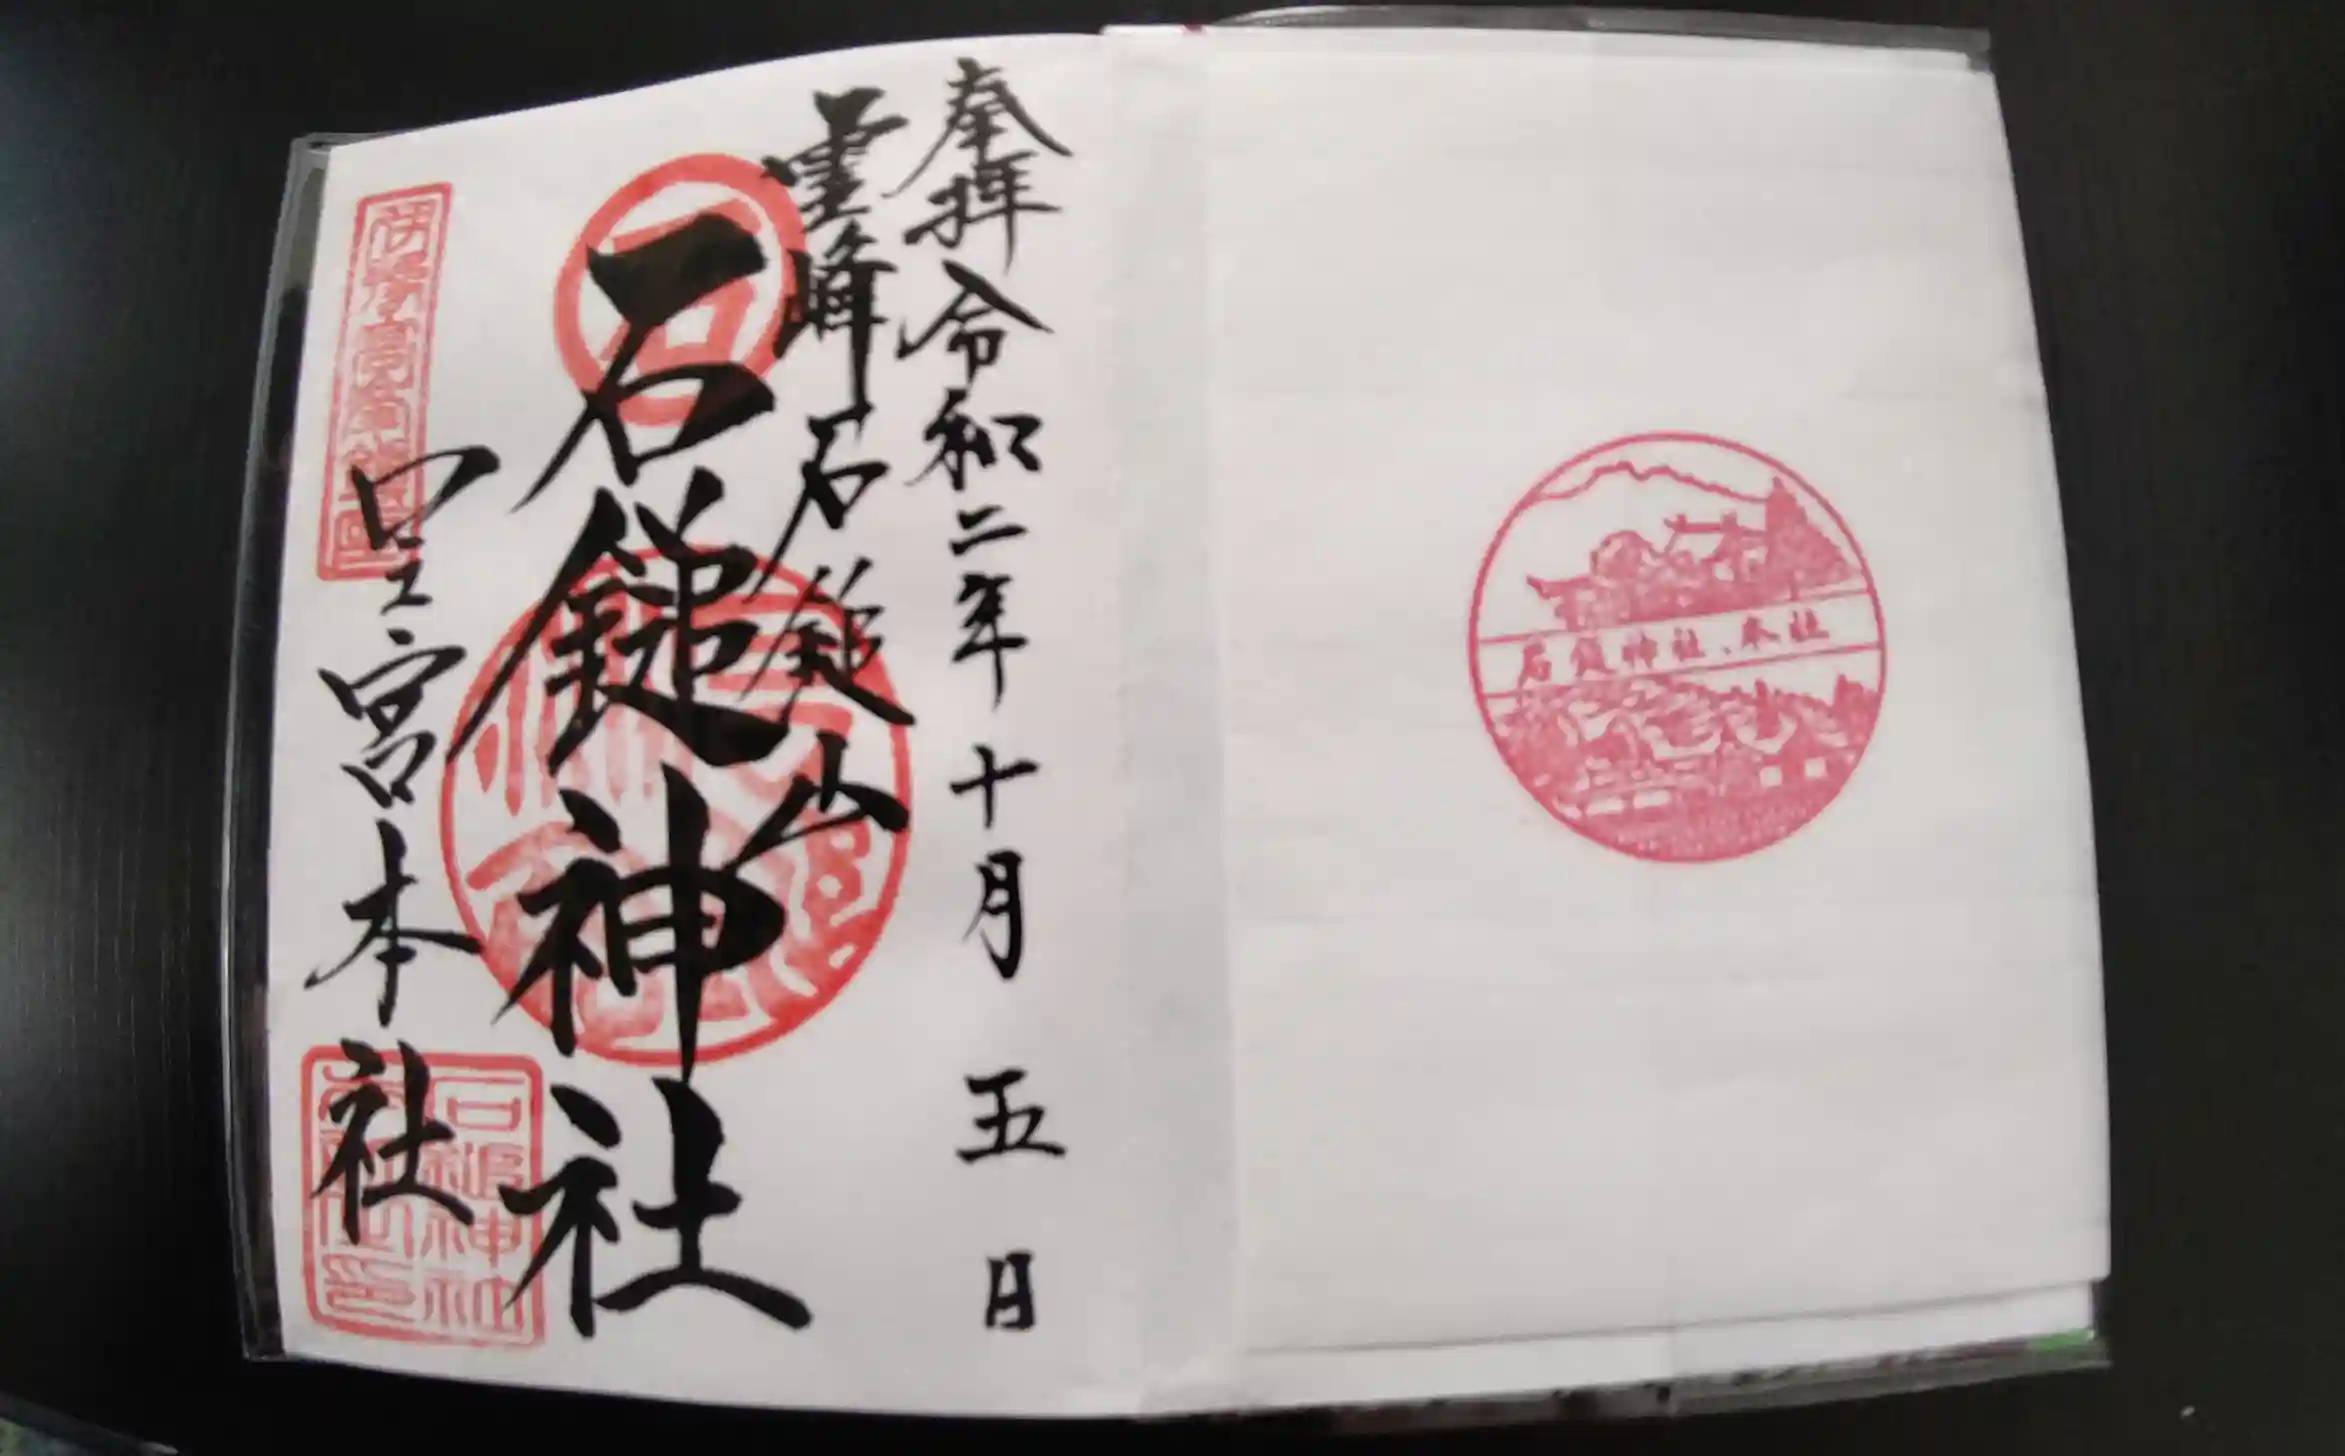 石鎚神社、本社
奉拝 令和二年十月五日
霊峰石鎚山
石鎚神社
口之宮本社
石鎚神社